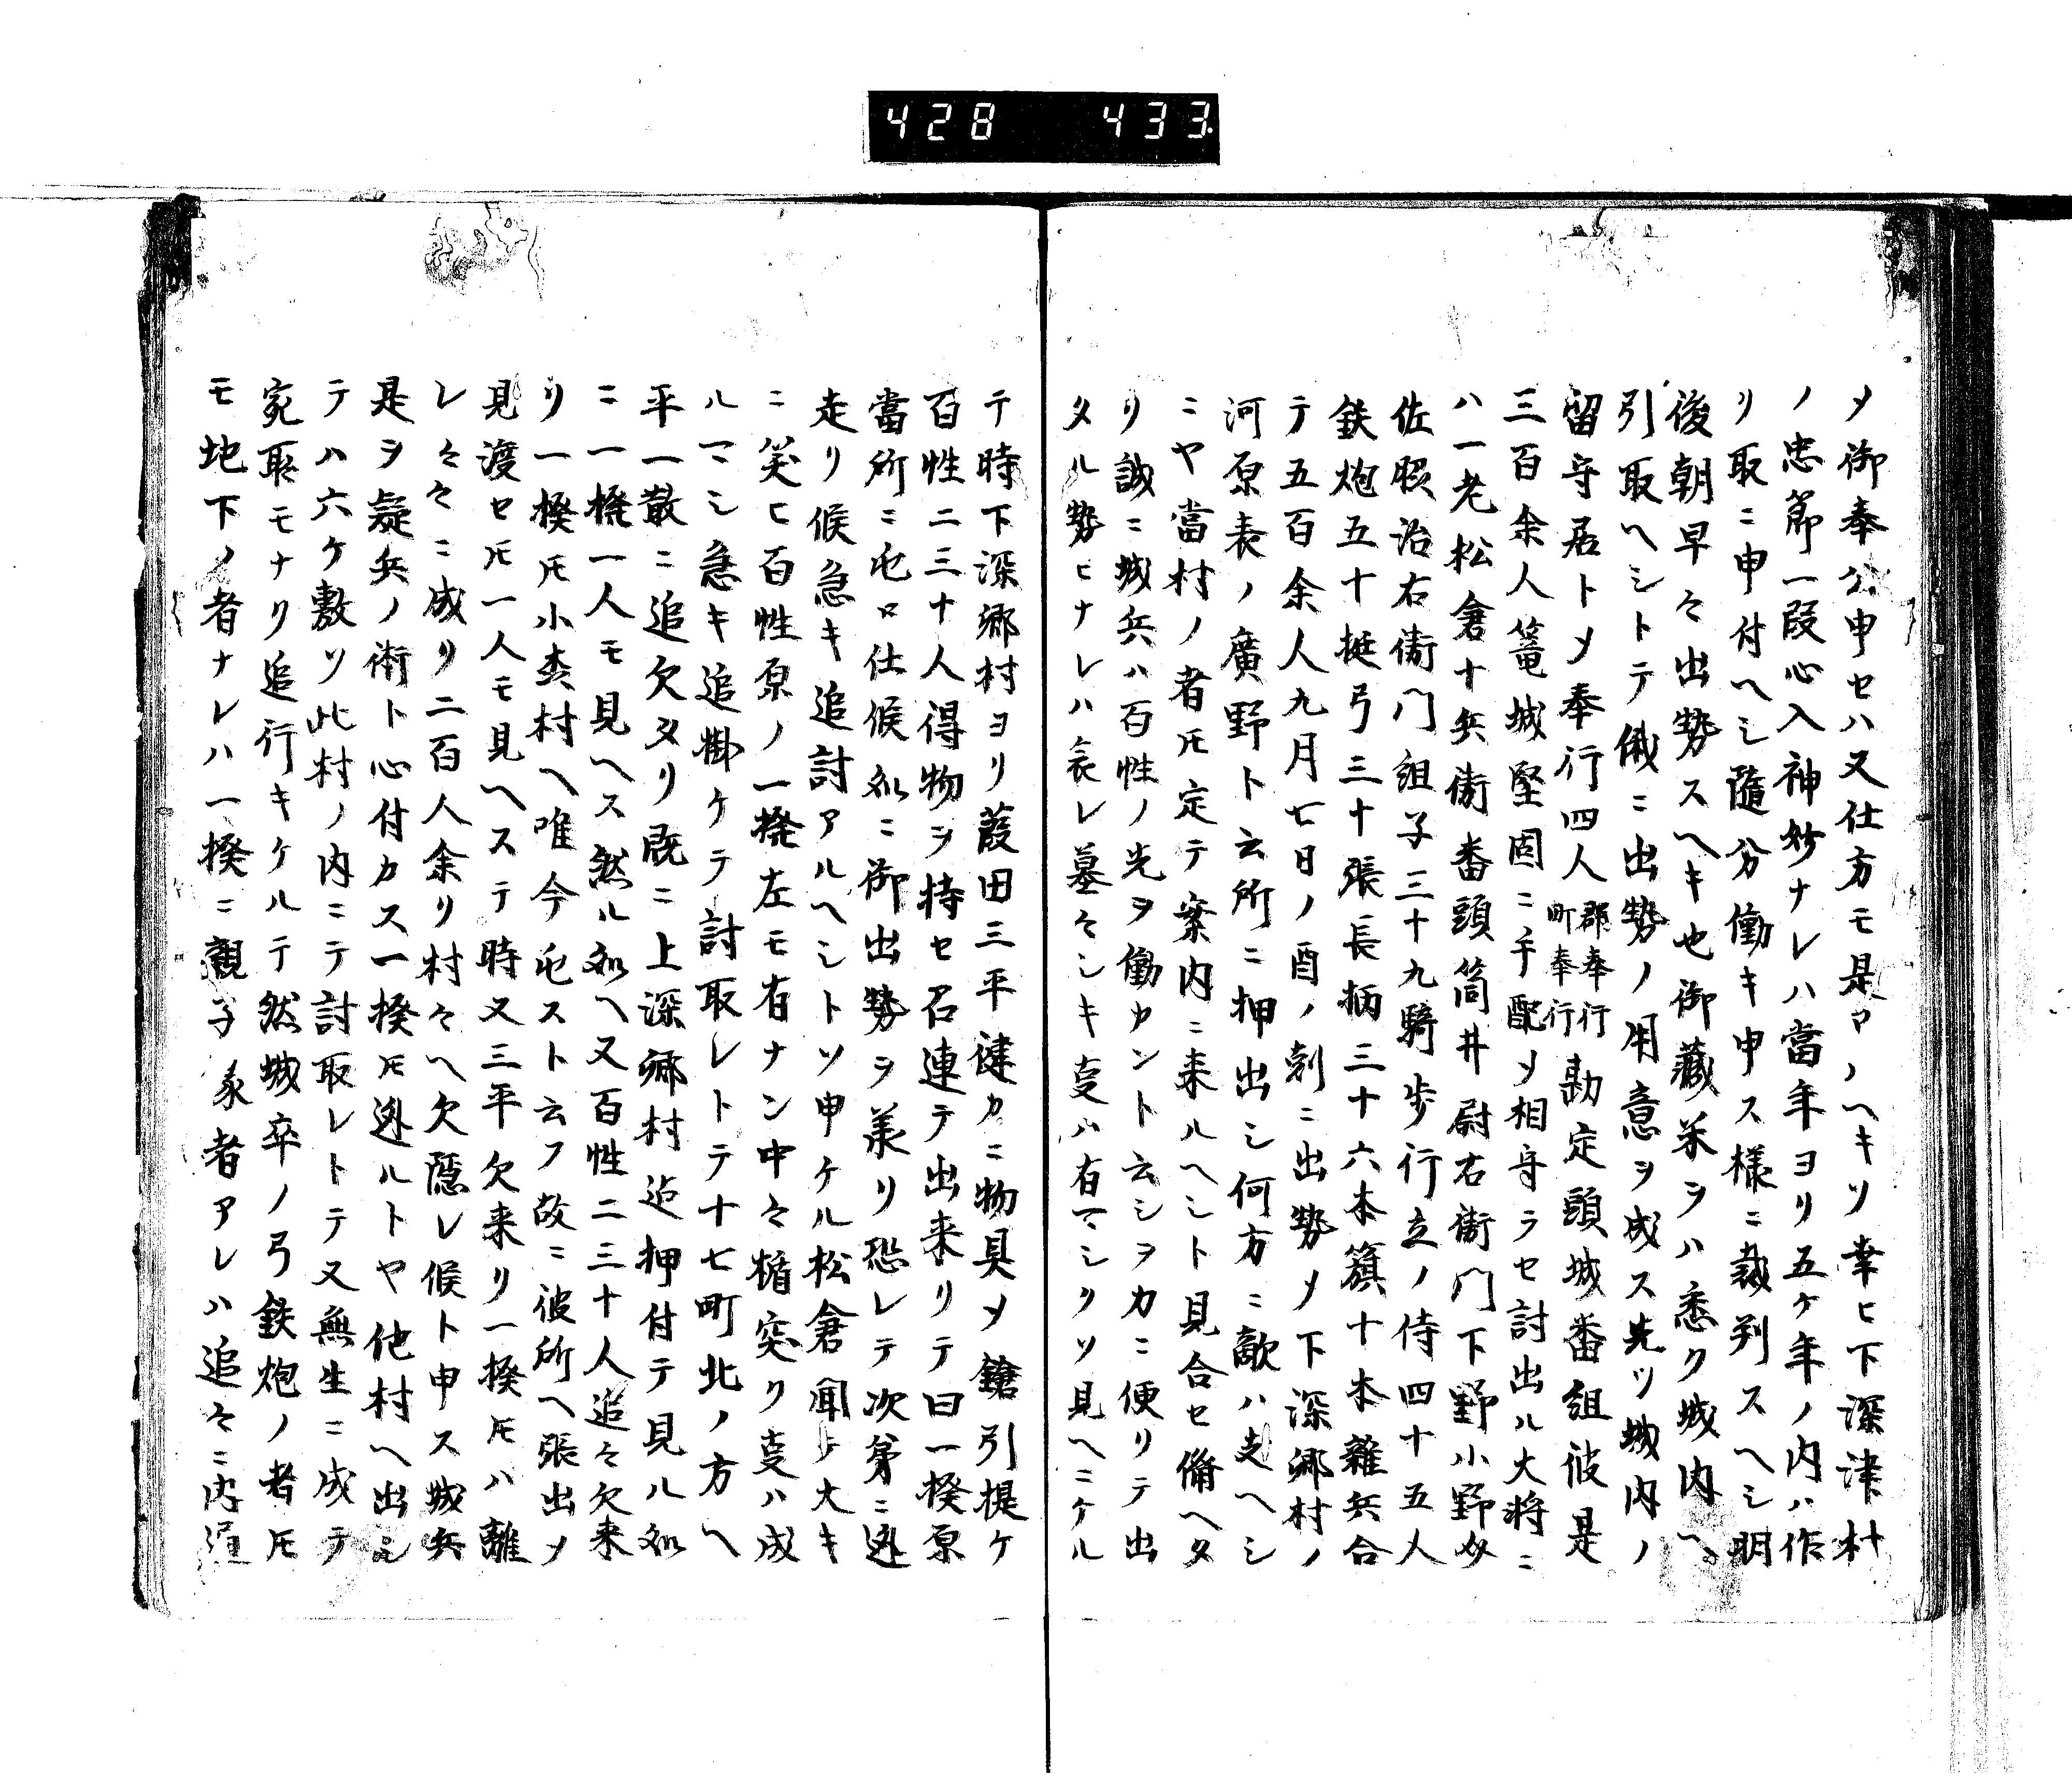 428 433
メ御奉公申セハ又仕方モ是アノヘキソ幸ヒ下深津村
ノ忠節一段心入神妙ナレハ當年ヨリ五ケ年ノ内ハ作
リ取ニ申付ヘシ隨分働キ申ス様ニ裁判スヘシ明
後朝早々出勢スヘキ也御藏米ヲハ悉ク城内ヘ
引取ヘシトテ俄ニ出勢ノ用意ヲ成ス先ツ城内ノ
留守居トメ奉行四人郡奉行町奉行勘定頭城番組彼是
三百余人篭城堅固ニ手配メ相守ラセ討出ル大将ニ
ハ一老松倉十兵衛番頭筒井尉右衛門下野小野
佐服治右衛門組子三十九騎歩行立ノ侍四十五人
鉄炮五十挺弓三十張長柄三十六本籏十本雜兵合
テ五百余人九月七日ノ酉ノ刻ニ出勢メ下深郷村ノ
河原表ノ廣野ト云所ニ押出シ何方ニ敵ハ支ヘシ
ニヤ當村ノ者𪜈定テ案内ニ来ルヘシト見合セ備ヘタ
リ誠ニ城兵ハ百性ノ先ヲ働カント云シヲカニ便リテ出
タル勢ヒナレハ哀レ墓々シキ㕝ハ有マシクソ見ヘニケル
テ時下深郷村ヨリ葭田三平健カニ物具メ鎗引提ケ
百性二三十人得物ヲ持セ召連テ出来リテ曰一揆原
當所ニ屯ロ仕候処ニ御出勢ヲ羨リ恐レテ次第ニ迯
走リ候急キ追討アルヘシトソ申ケル松倉聞テ大キ
ニ笑ヒ百性原ノ一揆左モ有ナン中々楯突ク㕝ハ成
ルマシ急キ追掛ケテ討取レトテ十七町北ノ方ヘ
平一散ニ追欠タリ既ニ上深郷村迠押付テ見ル処
ニ一揆一人モ見ヘス然ル処ヘ又百性二三十人追々欠来
リ一揆𪜈小森村ヘ唯今屯スト云フ故ニ彼所ヘ張出メ
見渡セ𪜈一人モ見ヘステ時又三平欠来リ一揆𪜈ハ離
レ々々ニ成リ二百人余リ村々ヘ欠隠レ候ト申ス城兵
是ヲ疑兵ノ術ト心付カス一揆𪜈迯ルトヤ他村ヘ出シ
テハ六ケ敷ソ此村ノ内ニテ討取レトテ又無生ニ成テ
宛取モナリ追行キケルテ然城卒ノ弓鉄炮ノ者𪜈
モ地下ノ者ナレハ一揆ニ親子彖者アレハ追々ニ内通